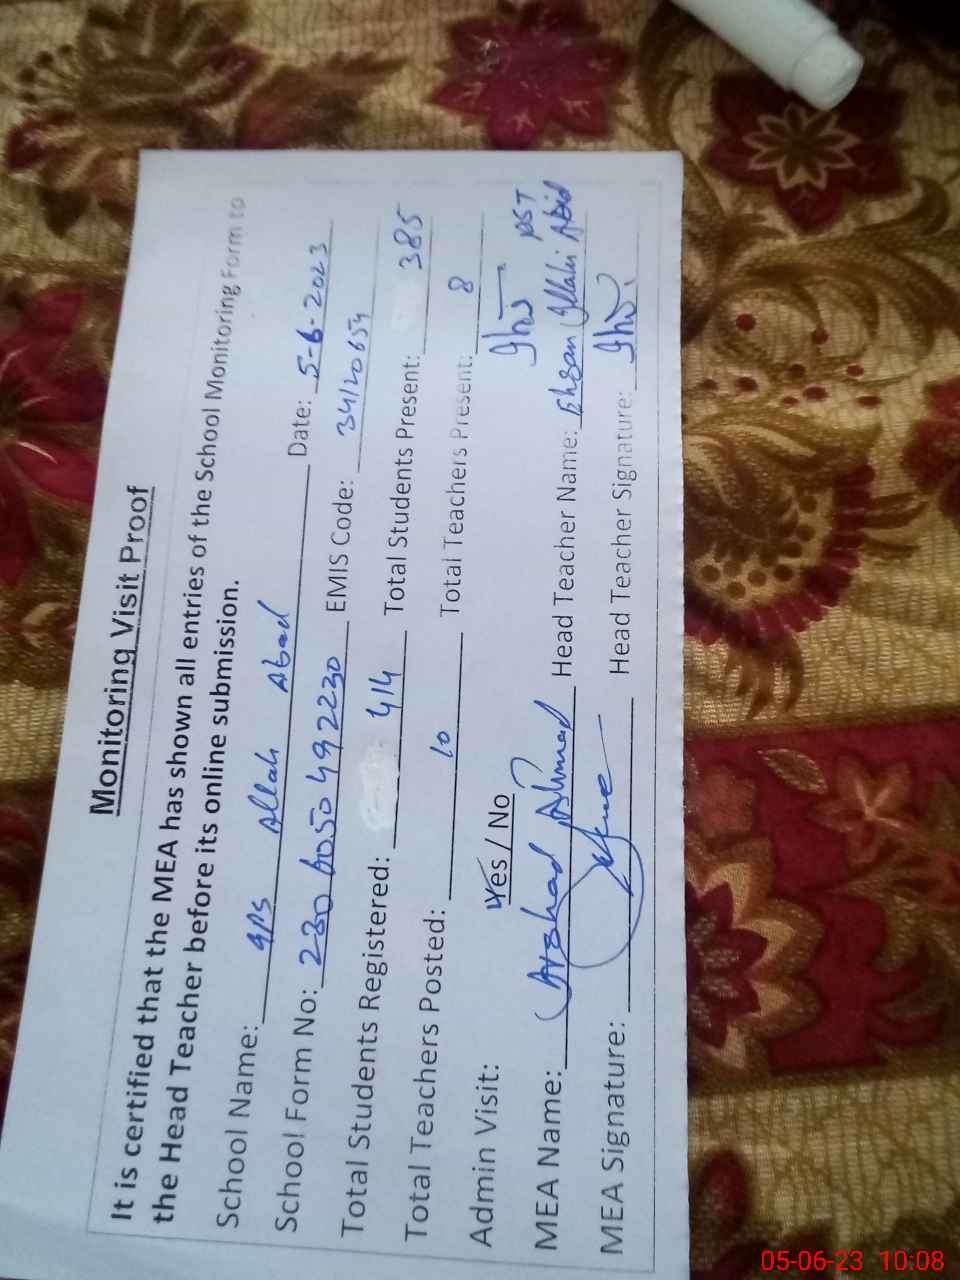 Monitoring Visit Proof
It is certified that the MEA has shown all entries of the School Monitoring Form to
the Head Teacher before its online submission.
School Name: GPS Allah Abad Date: 5-6-2023
School Form No: 230 6050492230 EMIS Code: 34120654
Total Students Registered: 414 Total Students Present: 385
Total Teachers Posted: 10 Total Teachers Present: 8
Admin Visit: Yes / No PST
MEA Name: Arshad Ahmad Head Teacher Name: Ehsan Illahi Abid
MEA Signature: Head Teacher Signature:
05-06-23 10:08